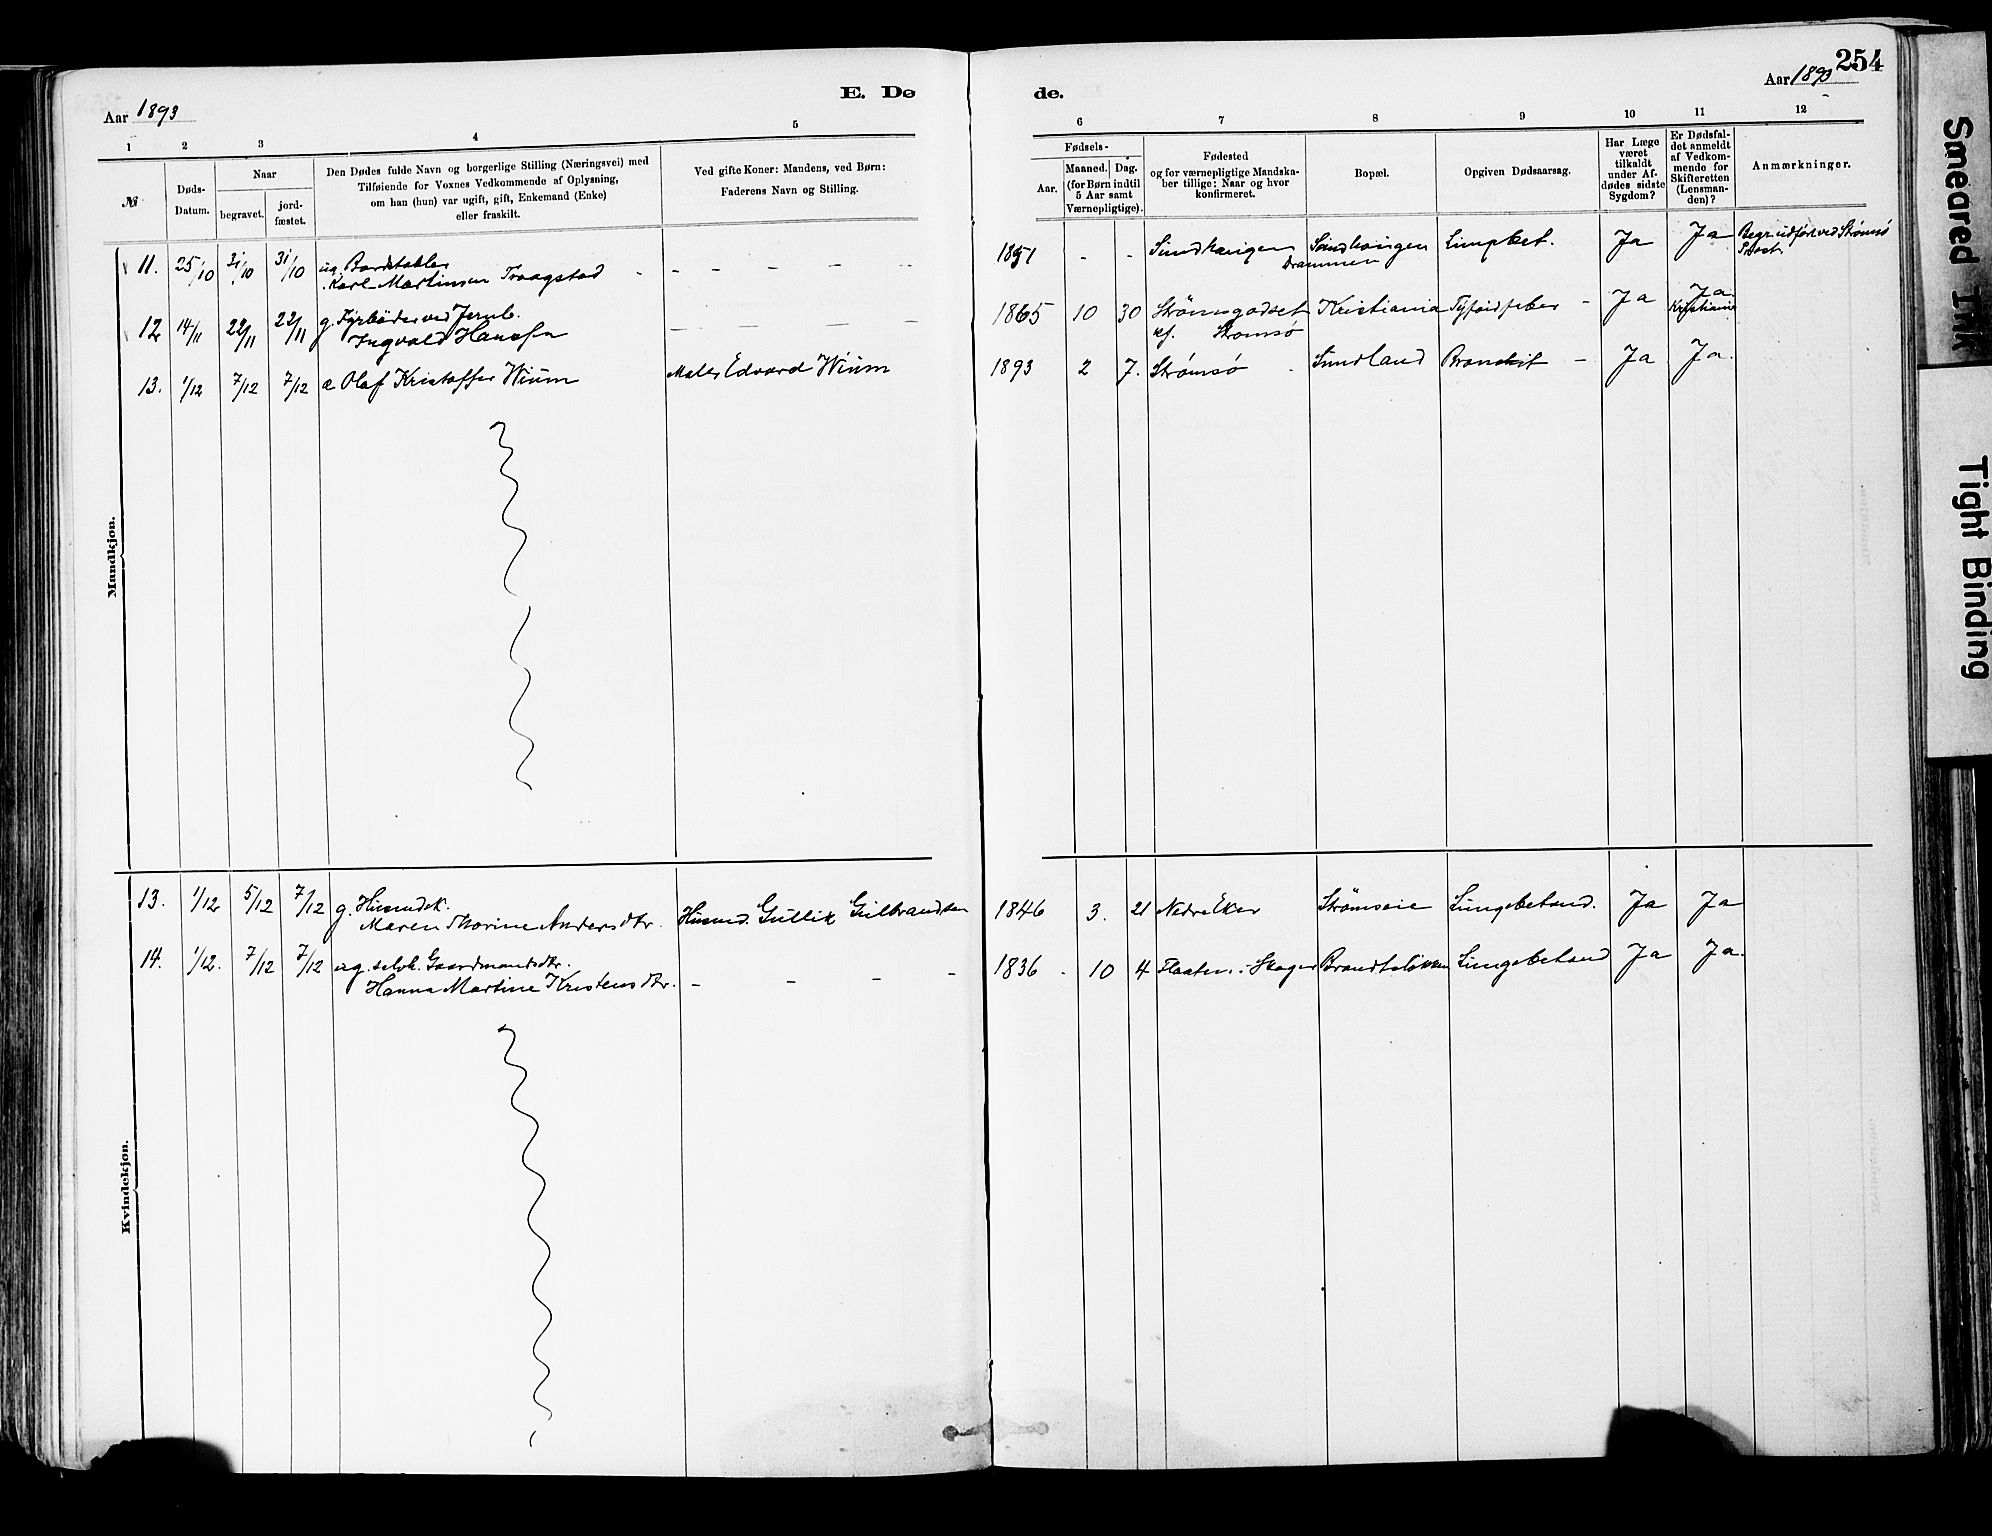 254
Aar 1893
E. Dø
de.
Aar 1893
1 2 3 4 5 6 7 8 9 10 11 12
№
Døds-
Datum.
Naar
begravet.
jord-
fæstet.
Den Dødes fulde Navn og borgerlige Stilling (Næringsvei) med
Tilføiende for Voxnes Vedkommende af Oplysning,
om han (hun) var ugift, gift, Enkemand (Enke)
eller fraskilt.
Ved gifte Koner: Mandens, ved Børn:
Faderens Navn og Stilling.
Fødsels-
Aar.
Maaned. Dag.
(for Børn indtil
5 Aar samt
Værnepligtige).
Fødested
og for værnepligtige Mandska-
ber tillige: Naar og hvor
konfirmeret.
Bopæl.
Opgiven Dødsaarsag.
Har Læge
været
tilkaldt
under Af-
dødes sidste
Sygdom?
Er Dødsfal-
det anmeldt
af Vedkom-
mende for
Skifteretten
(Lensman-
den)?
Anmærkninger.
Mandkjøn.
11. 25/10 31/10 31/10 ug. Bordstabler
Karl Martinsen Traagstad - - - - - - -
1851 - - Sundhaugen Sundhaugen
Drammen
Ja Ja Begr. udført ved Strømsø
Præst.
12 14/11 22/11 22/11 g. Fyrbøder ved Jernb.
Ingvald Hansen - - - - -
1865 10 30 Strømsgodset Kristiania Tyfoidfeber - Ja Ja
Kristiania
kf. Strømsø
13. 1/12 7/12 7/12 æ Olaf Kristoffer Wium Maler Edvard Wium
1893 2 7. Strømsø Sundland Bronchit - Ja Ja.
Kvindekjøn.
13. 1/12 5/12 7/12 g. Husmdsk.
Maren Thorine Andersdtr. Husmd. Gullik Gulbrandsen
1846 3. 21 Nedre Eker Strømsøie Lungebetænd. Ja Ja
14. 1/12. 7/12 7/12 ug. selvk. Gaardmandsdtr.
Hanna Martine Kristensdtr. - - - -
1836 - 10 4 Flaaten - Skoger Brandtsløkken Lungebetænd Ja Ja.
Smeared Ink
Tight Binding